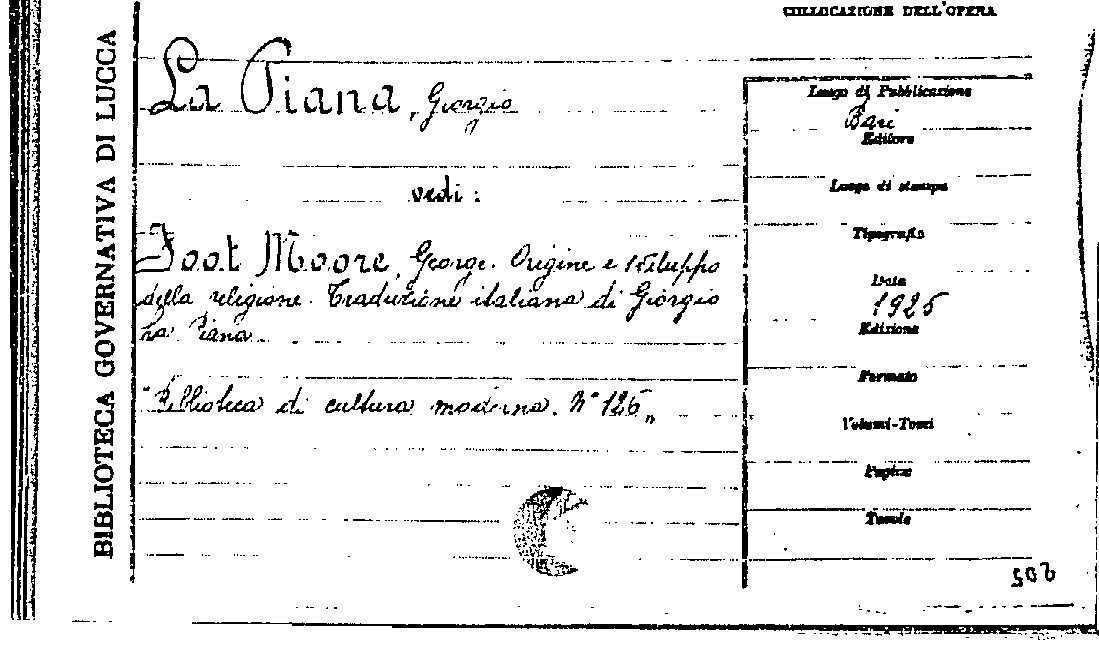 COLLOCAZIONE DELL'OPERA
BIBLIOTECA GOVERNATIVA DI LUCCA
La Piana, Giorgio
vedi:
Foot Moore, George. Origine e sviluppo
della religione. Traduzione italiana di Giorgio
La Piana.
"Biblioteca di cultura moderna. N° 126„
Luogo di Pubblicazione
Bari
Editore
Luogo di stampa
Tipografia
Data
1925
Edizione
Formato
Volumi-Tomi
Pagine
Tavole